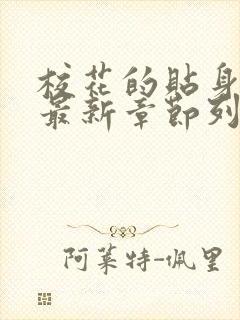 校花的貼身
最新章節列
阿萊特-佩里